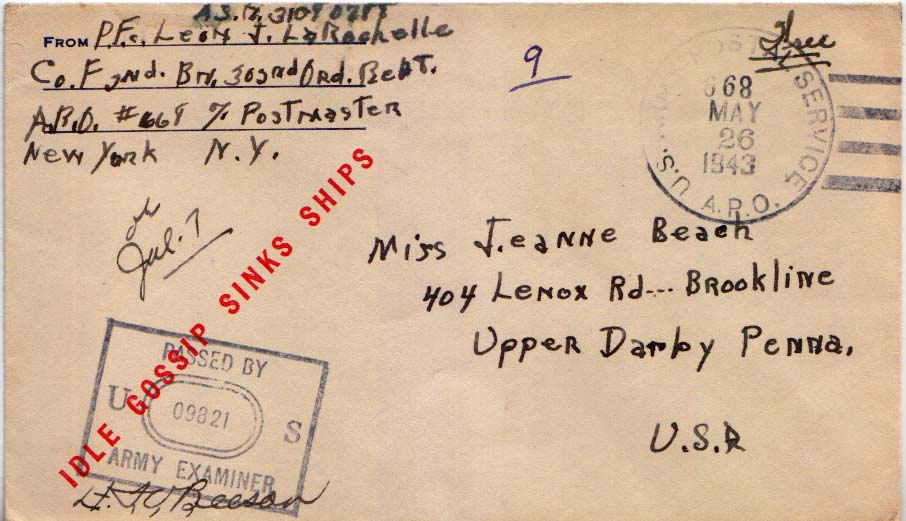 A.S.N. 31090785
FROM P.F.c. Leon J. LaRochelle
Co. F 2nd. Bn. 302nd Ord. Regt.
A.P.O. #668 % Postmaster
New York N.Y.
9
Free
U.S. POSTAL SERVICE
668
MAY
26
1943
A.P.O.
Jul. 7
IDLE GOSSIP SINKS SHIPS
Miss Jeanne Beach
404 Lenox Rd--- Brookline
Upper Darby Penna.
U.S.A
PASSED BY
U 09821 S
ARMY EXAMINER
Beeson